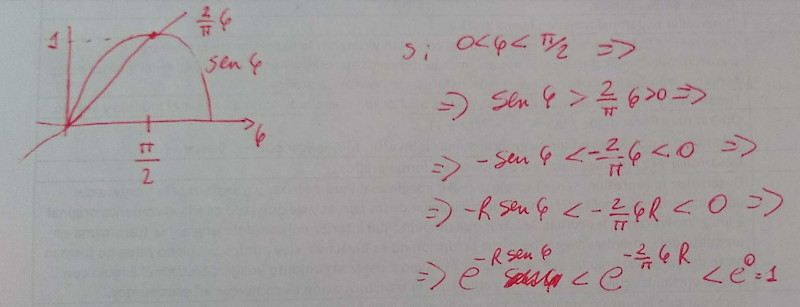 2/π φ
1
sen φ
π/2
φ
Si 0<φ<π/2 =>
=> sen φ > 2/π φ>0 =>
=> -sen φ < -2/π φ < 0 =>
=> -R sen φ < -2/π φ R < 0 =>
=> e^(-R sen φ) < e^(-2/π φ R) < e^0 = 1